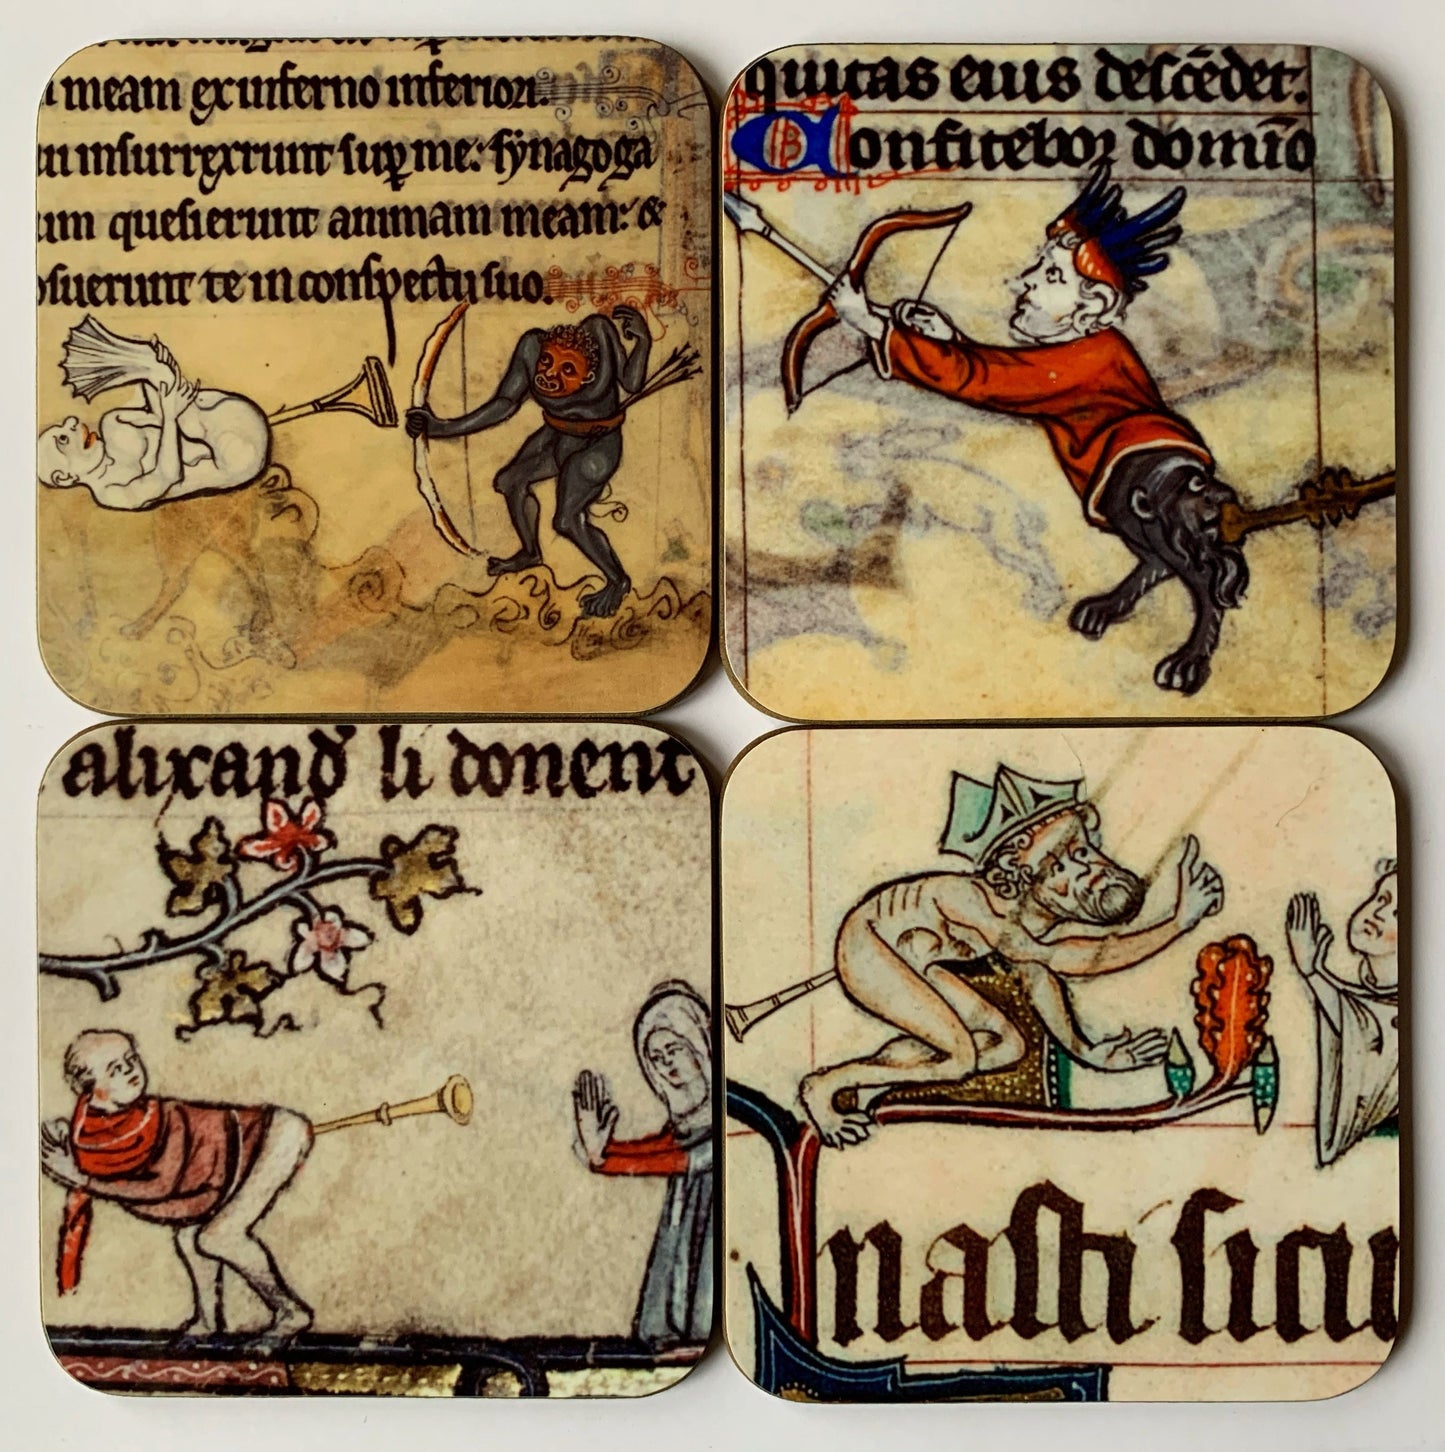 meam ex inferno inferiori.
insurrexerunt sup me: synagoga
um quesierunt animam meam: &
osuerunt te in conspectu suo.
quitas eius descēdet.
Confitebor domīo
alixand̄ li donent
nasti sicu